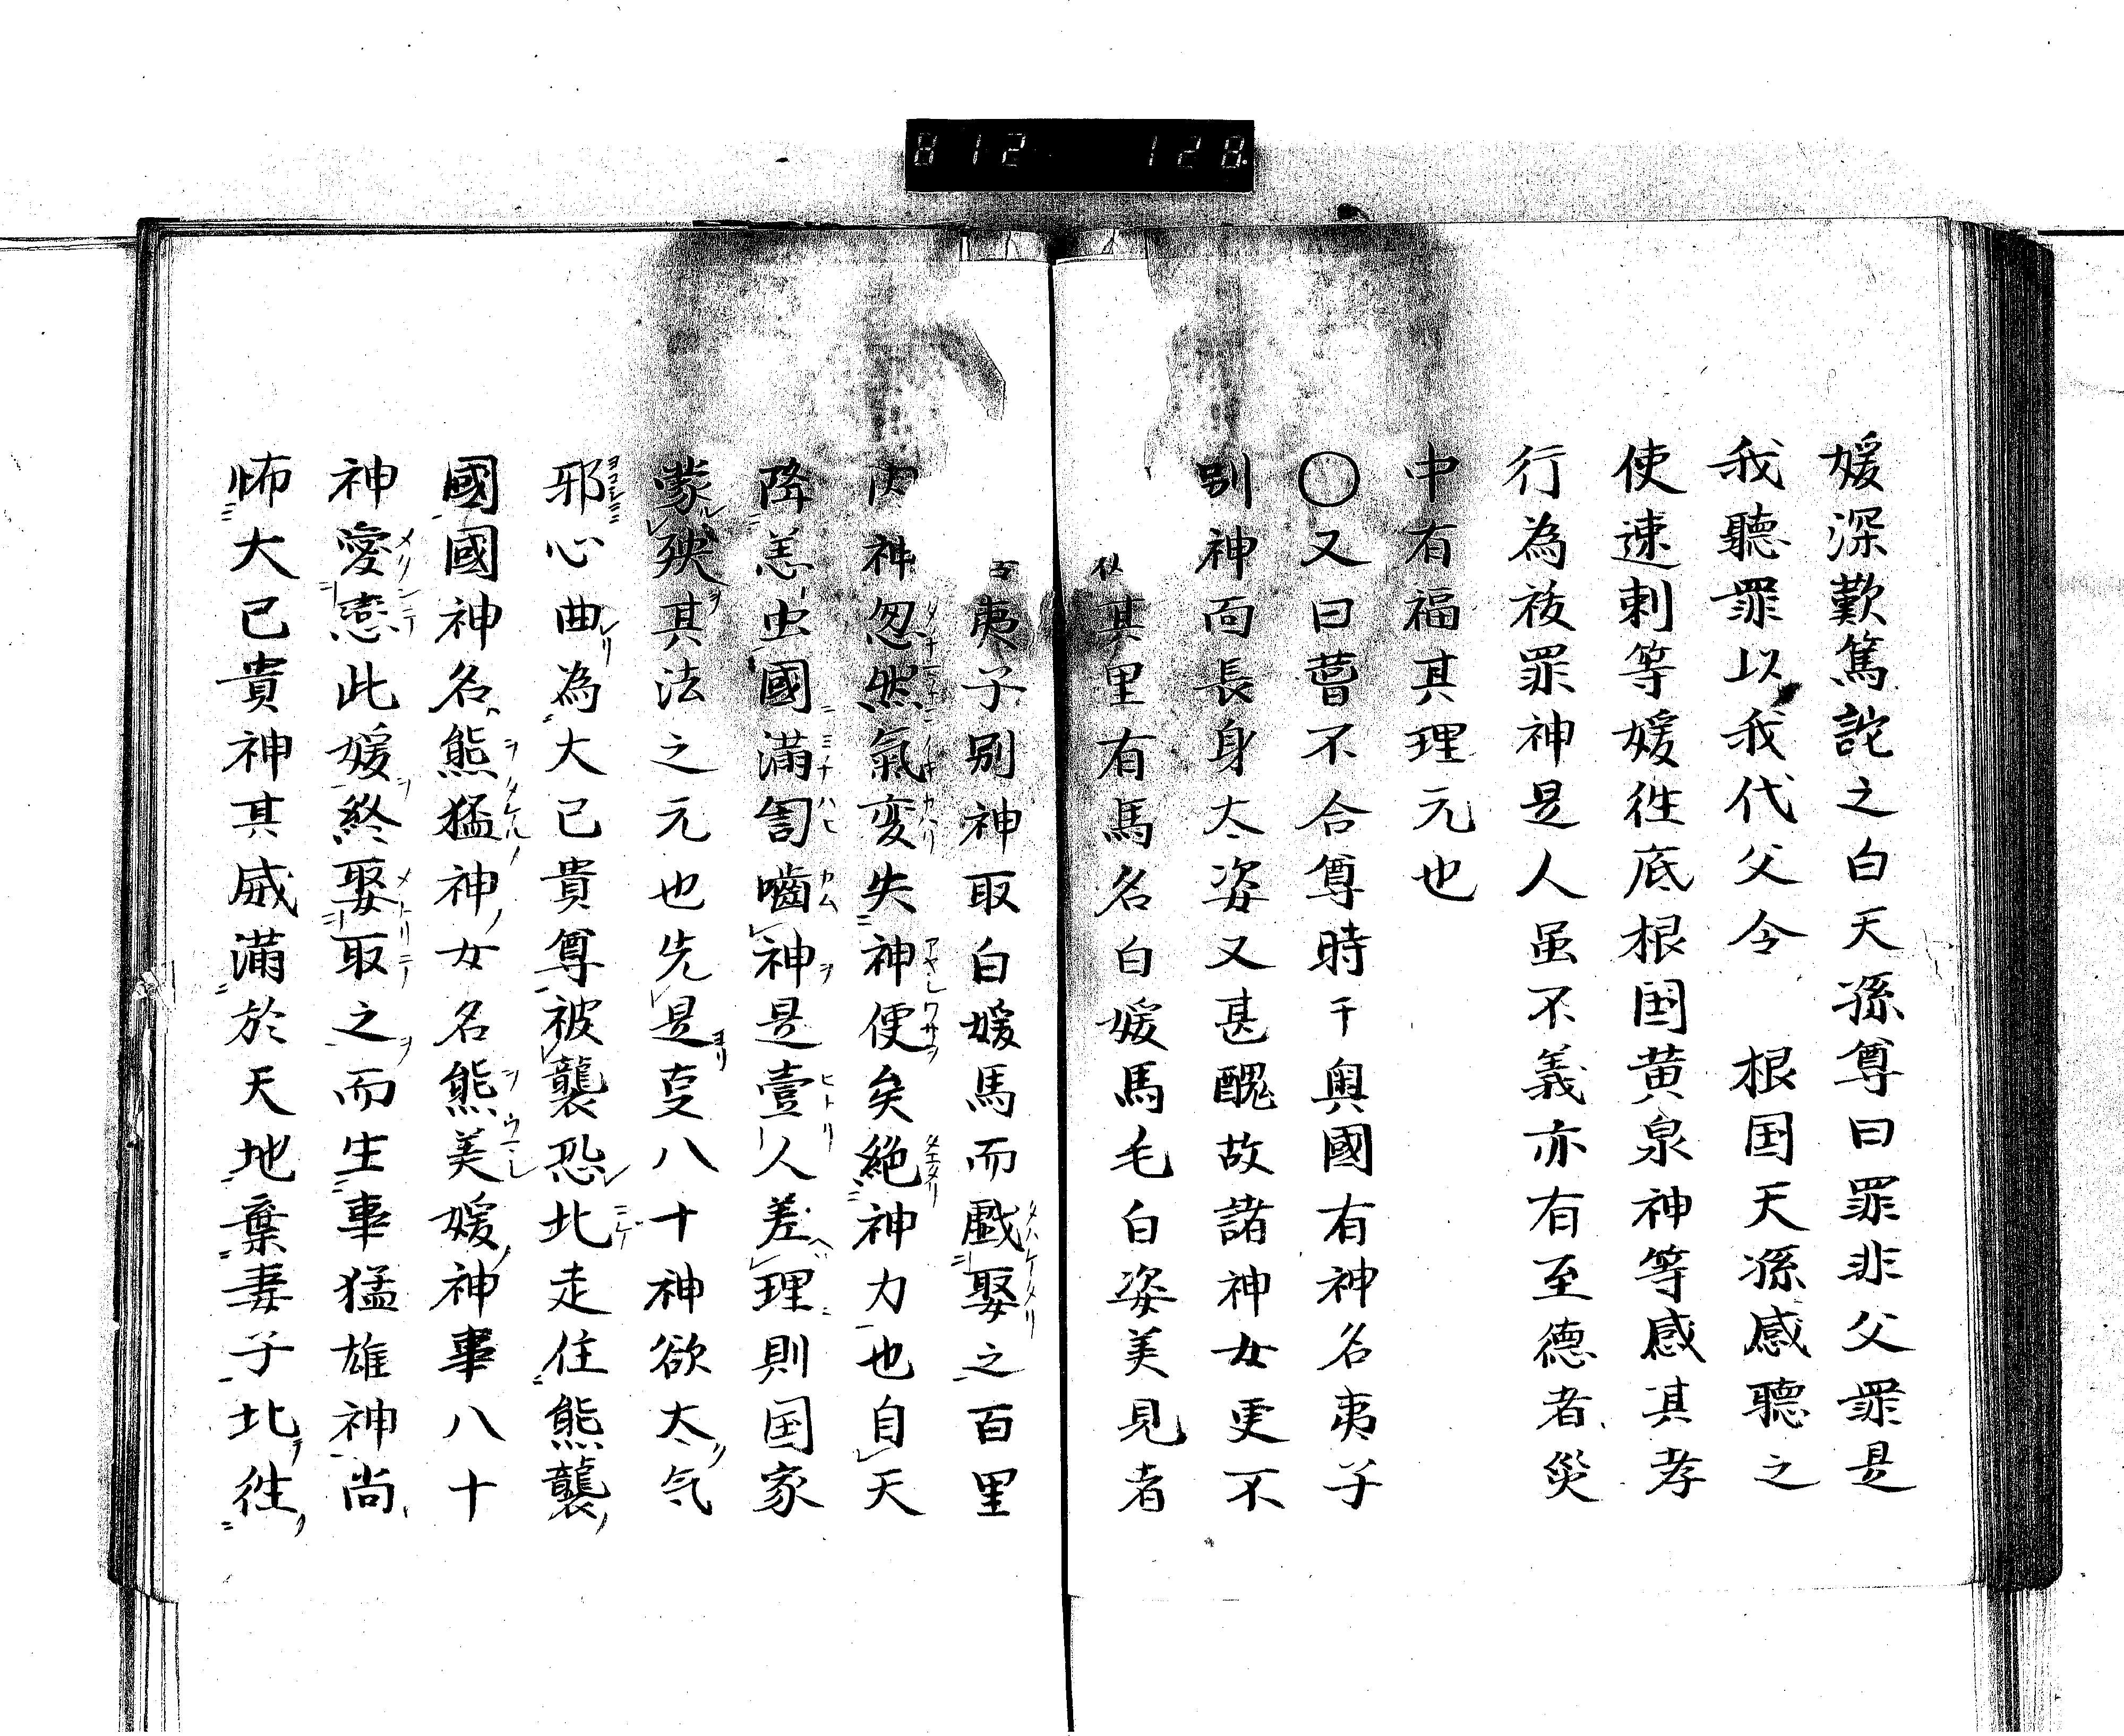 812 128
媛深歎篤詑之白天孫尊曰罪非父罪是
我聽罪以我代父令 根国天孫感聽之
使速刺等媛徃底根国黄泉神等感其孝
行為祓罪神是人虽不義亦有至德者災
中有福其理元也
〇又曰葺不合尊時千奥國有神名夷子
别神面長身太姿又甚醜故諸神女更不
其里有馬名白媛馬毛白姿美見者
夷子别神取白媛馬而戯娶之百里
内神忽然氣変失神便矣絶神力也自天
降恙虫國滿割嚙神是壹人差理則国家
蒙殃其法之元也先是㕝八十神欲太气
邪心曲為大已貴尊被襲恐北走住熊襲
國國神名熊猛神女名熊美媛神事八十
神愛戀此媛終娶取之而生事猛雄神尚
怖大已貴神其威滿於天地棄妻子北徃